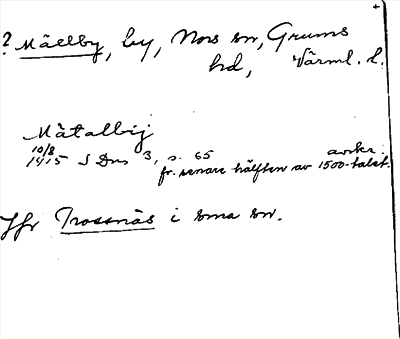 ? Mällby, by, Nors sn, Grums
hd, Värml. l.
Mätalbij
10/8 1415 S Dns 3, s. 65 avskr.
fr. senare hälften av 1500-talet.
Jfr Trossnäs i sma sn.